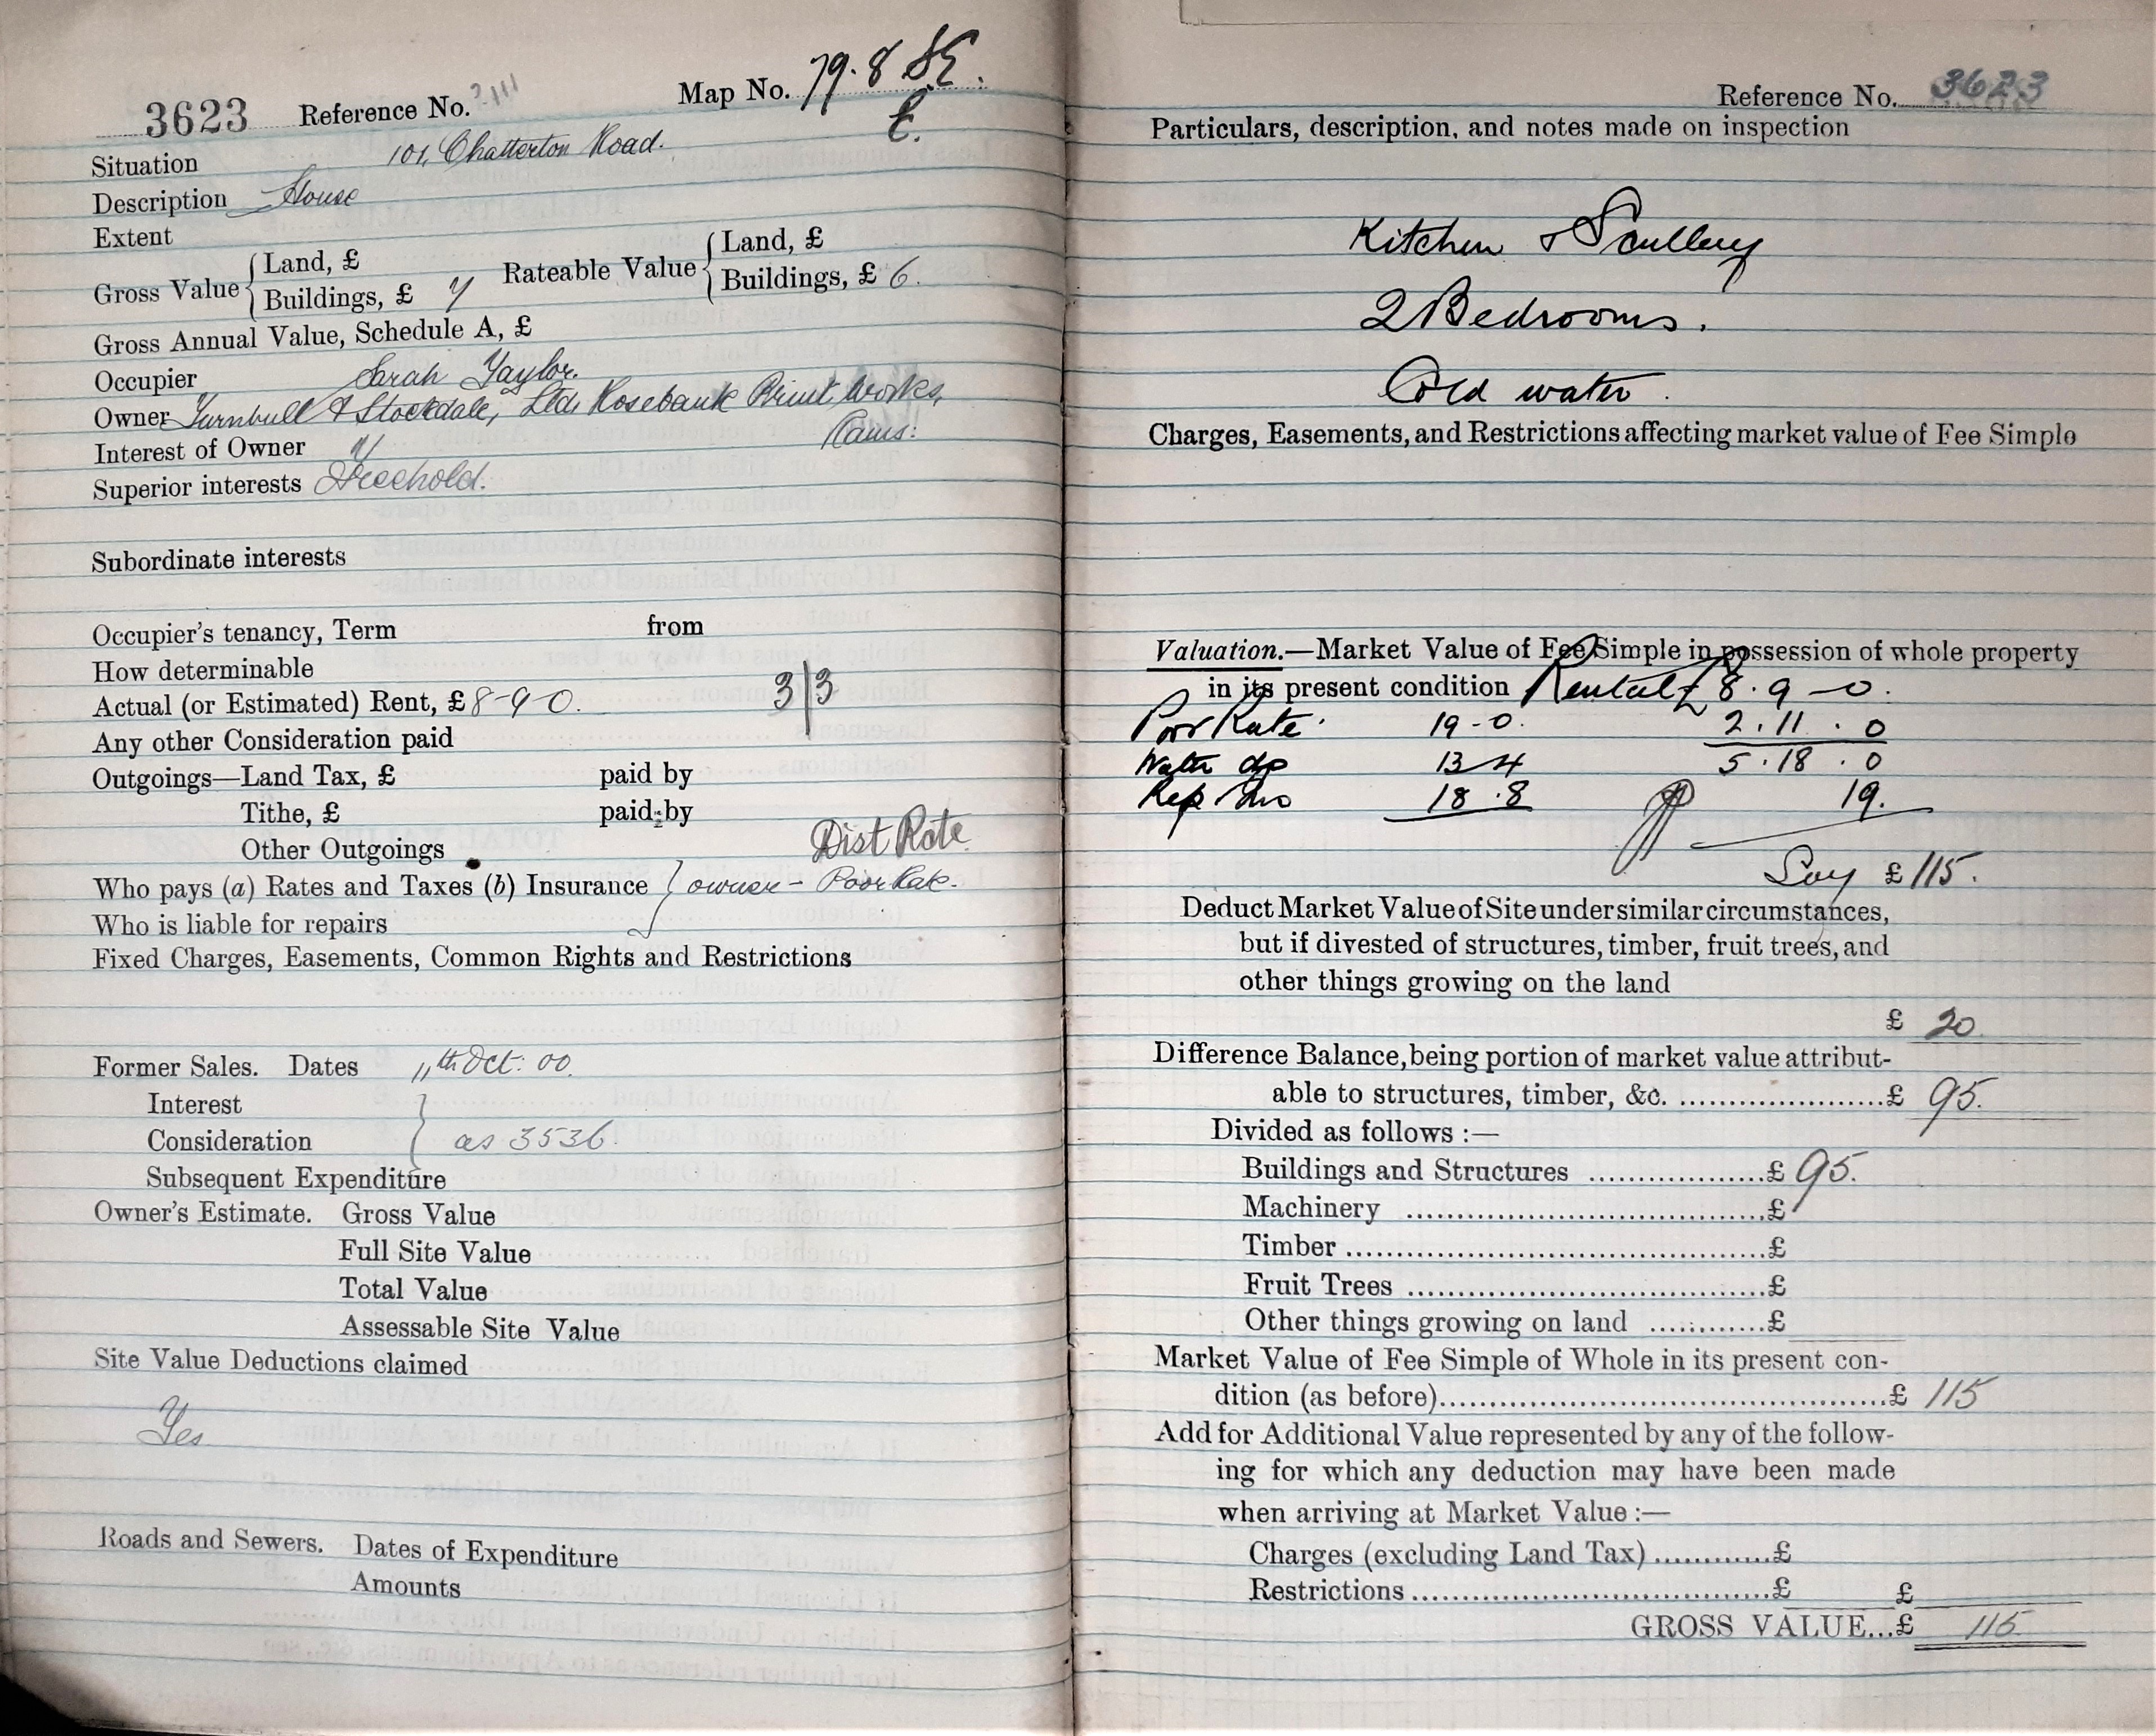 3623 Reference No. Map No. 79.8 SE
E.
Situation 101, Chatterton Road.
Description House
Extent
Gross Value { Land, £ Rateable Value { Land, £
Buildings, £ 7 Buildings, £ 6.
Gross Annual Value, Schedule A, £
Occupier Sarah Taylor.
Owner Turnbull & Stockdale, Ltd, Rosebank Print Works,
Rams:
Interest of Owner
Superior interests Freehold.
Subordinate interests
Occupier's tenancy, Term from
How determinable
Actual (or Estimated) Rent, £ 8-9-0. 3/3
Any other Consideration paid
Outgoings—Land Tax, £ paid by
Tithe, £ paid by
Other Outgoings Dist Rate
Who pays (a) Rates and Taxes (b) Insurance } owner - Poor Rate.
Who is liable for repairs
Fixed Charges, Easements, Common Rights and Restrictions
Former Sales. Dates 11th Oct: 00.
Interest
Consideration } as 3536.
Subsequent Expenditure
Owner's Estimate. Gross Value
Full Site Value
Total Value
Assessable Site Value
Site Value Deductions claimed
Yes
Roads and Sewers. Dates of Expenditure
Amounts
Reference No. 3623
Particulars, description, and notes made on inspection
Kitchen & Scullery
2 Bedrooms.
Cold water.
Charges, Easements, and Restrictions affecting market value of Fee Simple
Valuation.—Market Value of Fee Simple in possession of whole property
in its present condition Rental £8.9-0.
Poor Rate. 19-0. 2.11.0
Water do 13 4 5.18.0
Rep Ins 18.8 19.
Say £115.
Deduct Market Value of Site under similar circumstances,
but if divested of structures, timber, fruit trees, and
other things growing on the land
£ 20.
Difference Balance, being portion of market value attribut-
able to structures, timber, &c. ......................£ 95.
Divided as follows :—
Buildings and Structures ...................£ 95.
Machinery ......................................£
Timber .............................................£
Fruit Trees ......................................£
Other things growing on land ............£
Market Value of Fee Simple of Whole in its present con-
dition (as before)................................................£ 115
Add for Additional Value represented by any of the follow-
ing for which any deduction may have been made
when arriving at Market Value :—
Charges (excluding Land Tax) ............£
Restrictions ......................................£ £
GROSS VALUE...£ 115.